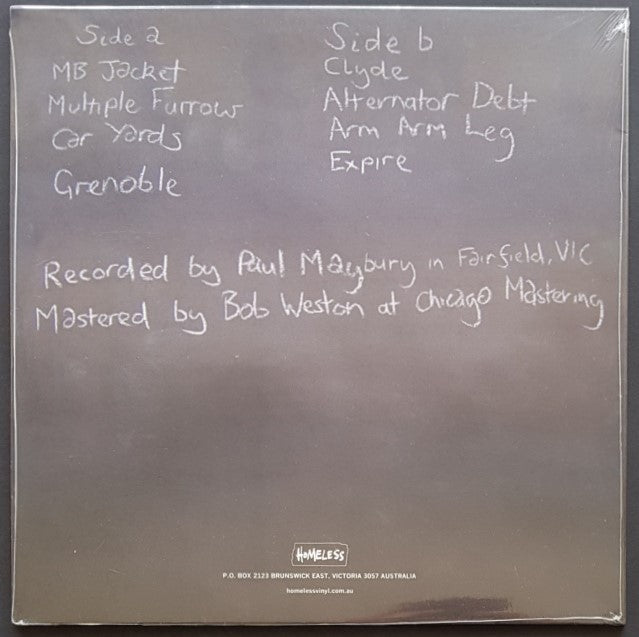 Side a
MB Jacket
Multiple Furrow
Car Yards
Grenoble
Side b
Clyde
Alternator Debt
Arm Arm Leg
Expire
Recorded by Paul Maybury in Fairfield, VIC
Mastered by Bob Weston at Chicago Mastering
HOMELESS
P.O. BOX 2123 BRUNSWICK EAST, VICTORIA 3057 AUSTRALIA
homelessvinyl.com.au